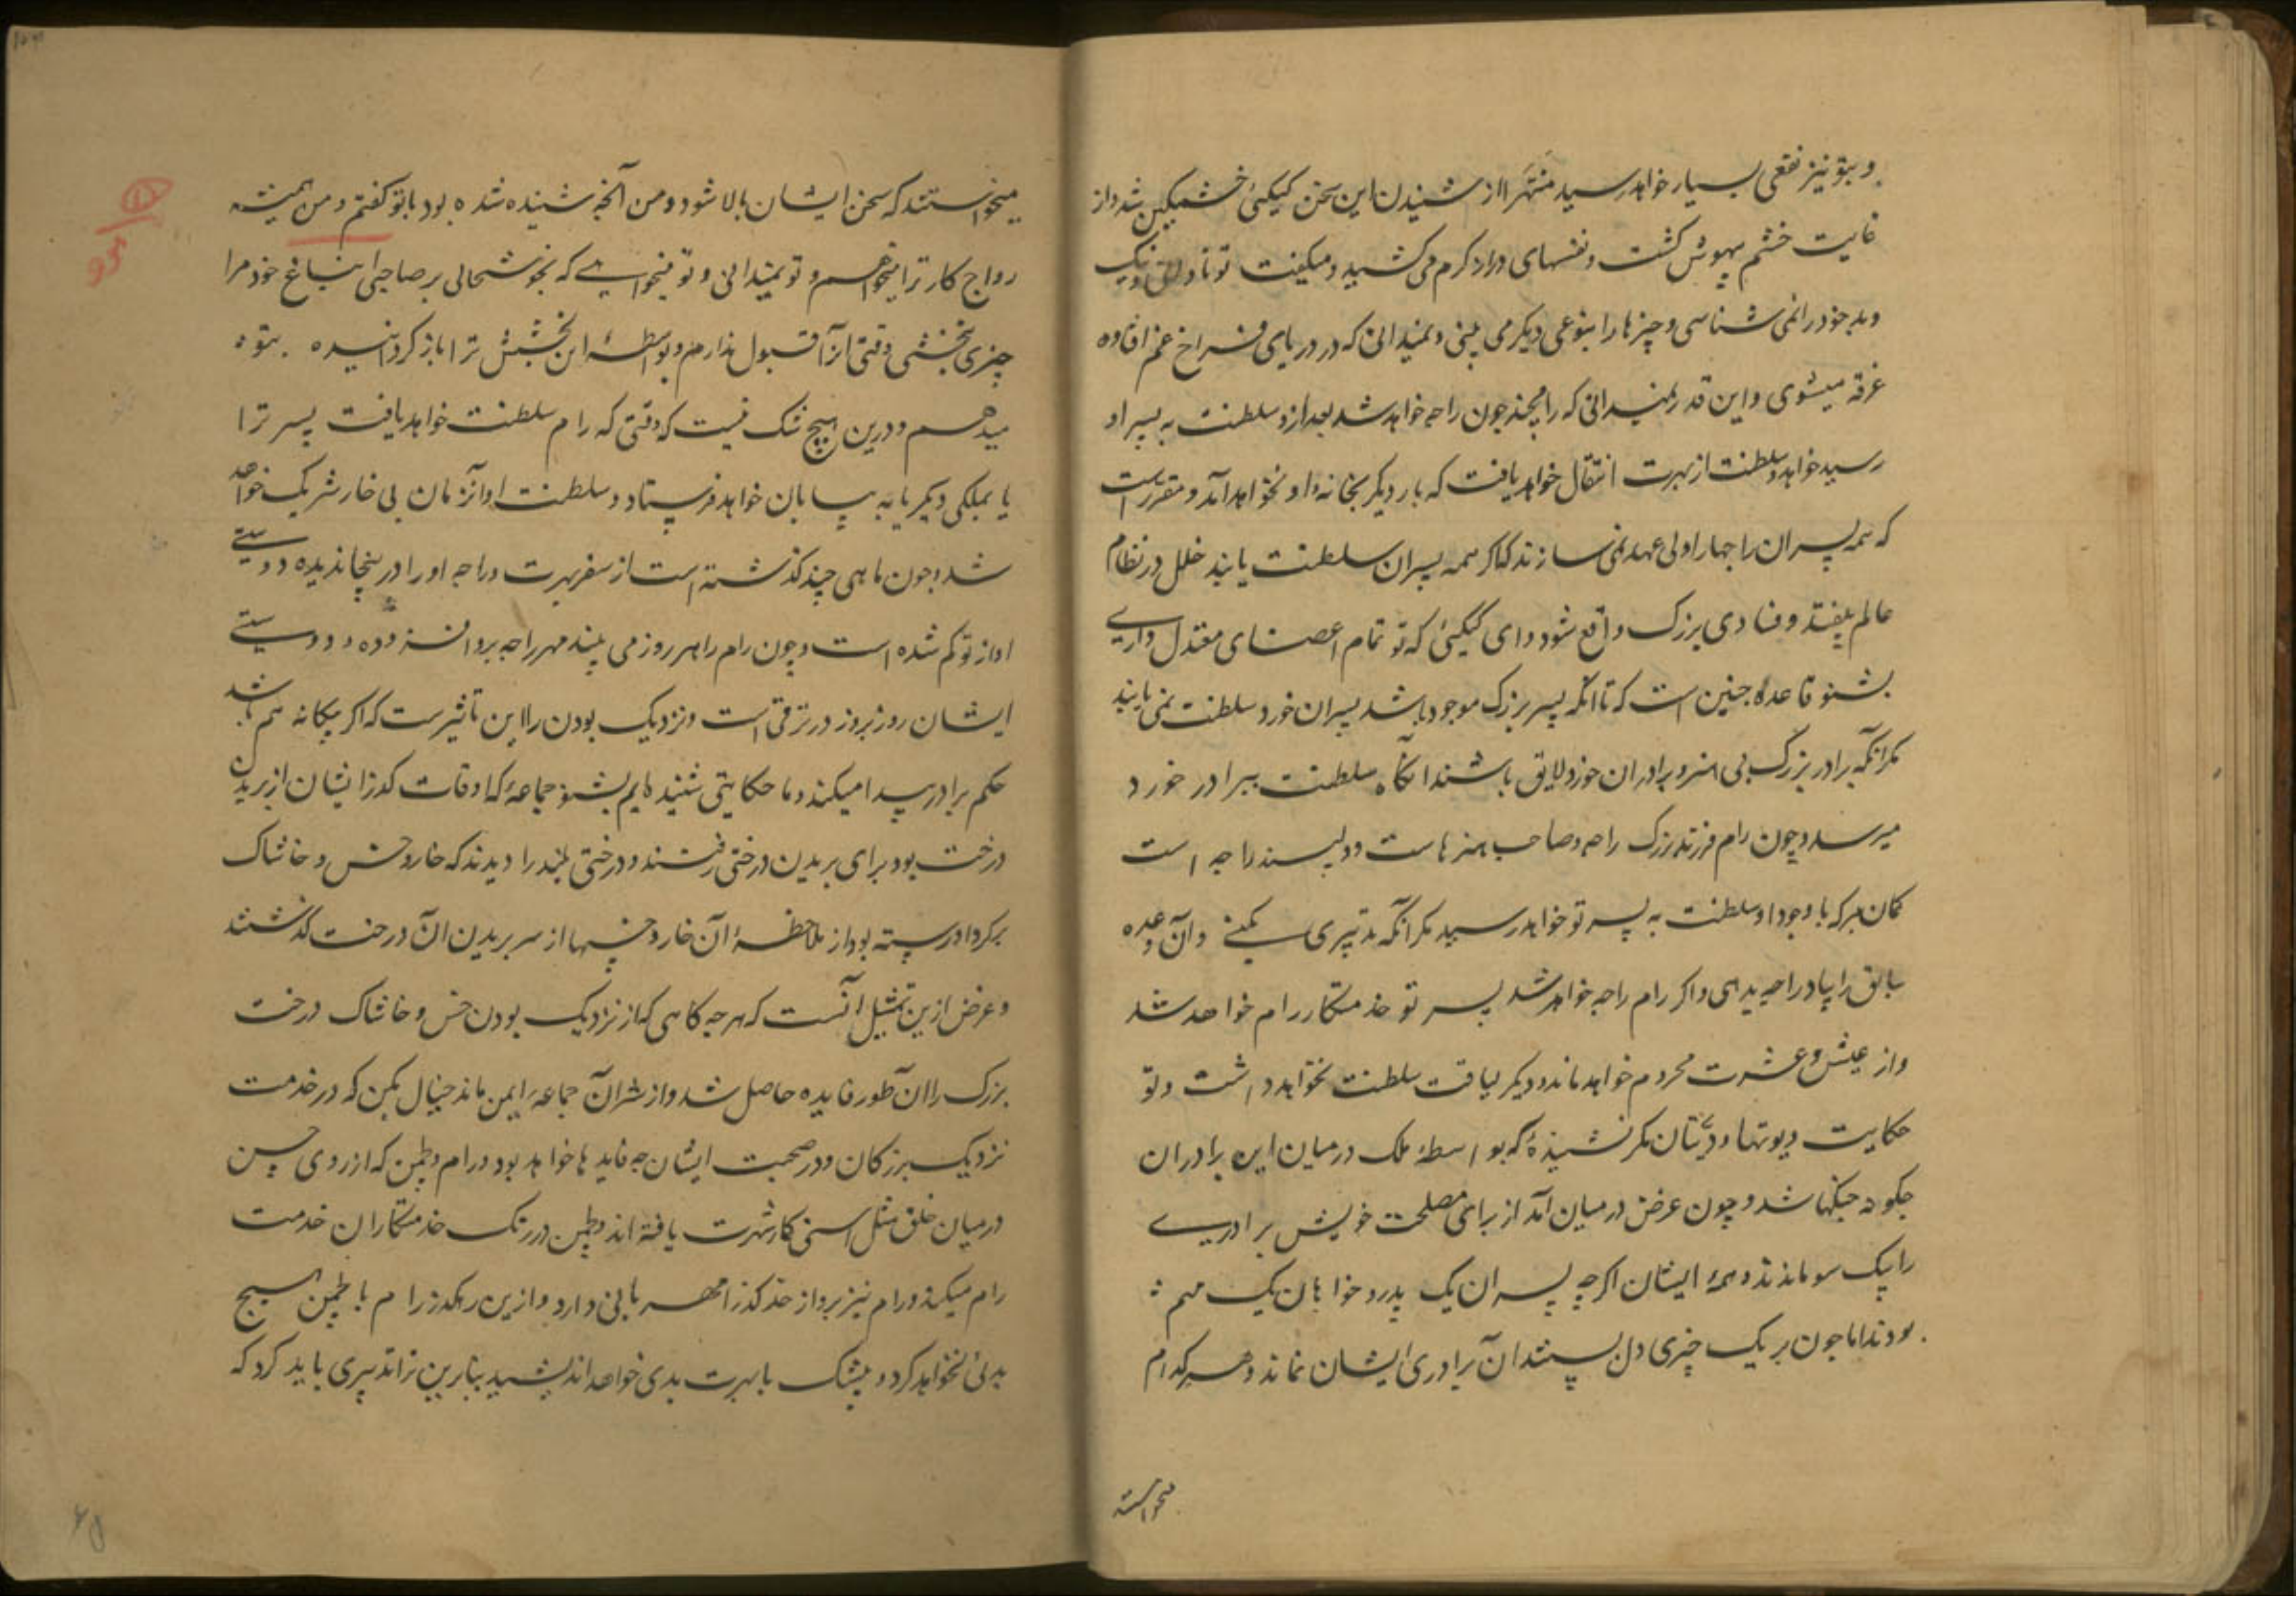 و بتو نیز نفعی بسیار خواهد رسید منتهرا از شنیدن این سخن کیکئی خشمکین شد و از
غایت خشم بیهوش کشت و نفسهای دراز کرم می کشید و میکفت تو نادانی و نیک
و بد خود را نمی شناسی و چیزها را بنوعی دیکر می بینی و نمیدانی که در دریای فراخ غم افتاده
غرق میشوی و این قدر نمیدانی که رامچند چون راجه خواهد شد بعد از و سلطنت به پسر او
رسید خواهد و سلطنت از بهرت انتقال خواهد یافت که بار دیکر بخانه او نخواهد آمد و مقررست
که همه پسران راجها را ولی عهد نمی سازند که اکر همه پسران سلطنت یابند خلل در نظام
عالم بیفتد و فسادی بزرک واقع شود و ای کیکئی که تو تمام اعضای معتدل داری
بشنو قاعده چنین است که تا آنکه پسر بزرک موجود باشد پسران خورد سلطنت نمی یابند
مکر آنکه برادر بزرک بی هنر و برادران خورد لایق باشند آنکاه سلطنت ببرادر خورد
میرسد و چون رام فرزند بزرک راجه و صاحب هنرهاست و دلپسند راجه است
کمان مبر که با وجود او سلطنت به پسر تو خواهد رسید مکر آنکه تدبیری بکنی و آن وعده
سابق را بیاد راجه بدهی و اکر رام راجه خواهد شد پسر تو خدمتکار رام خواهد شد
و از عیش و عشرت محروم خواهد ماند و دیکر لیاقت سلطنت نخواهد داشت و تو
حکایت دیوتها و دیتان مکر نشنیدهٔ که بواسطهٔ ملک درمیان این برادران
چکونه جنکها شد و چون غرض درمیان آمد از برای مصلحت خویش برادری
را یک سو ماندند و همهٔ ایشان اکرچه پسران یک پدر و خواهان یک مهم
بودند اما چون بر یک چیزی دل بستند آن برادری ایشان نماند و هر کدام
میخواستند
میخواستند که سخن ایشان بالا شود و من آنچه شنیده شده بود با تو کفتم و من همیشه
رواج کار ترا میخواهم و تو نمیدانی و تو میخواهی که بخوشحالی بر صاحبی انباغ خود مرا
چیزی بخشی وقتی آنرا قبول ندارم و بواسطهٔ این بخشش ترا باز کردانیده بتو
میدهم و درین هیچ شک نیست که وقتی که رام سلطنت خواهد یافت پسر ترا
یا بملکی دیکر یا به بیابان خواهد فرستاد و سلطنت او آنزمان بی خار شریک خواهد
شد و چون ماهی چند کذشته است از سفر بهرت و راجه او را درینجا ندیده دوستی
او از تو کم شده است و چون رام را هر روز می بیند مهر راجه برو افزوده و دوستی
ایشان روز بروز در ترقی است و نزدیک بودن را این تاثیرست که اکر بیکانه هم باشد
حکم برادر پیدا میکند و ما حکایتی شنیده ایم بشنو جماعهٔ که اوقات کذر ایشان از بریدن
درخت بود برای بریدن درختی رفتند و درختی بلند را دیدند که خار و خس و خاشاک
برکرد او رسته بود از ملاحظهٔ آن خار و خسها از سر بریدن آن درخت کذشتند
و غرض ازین تمثیل آنست که هر چه کاهی که از نزدیک بودن خس و خاشاک درخت
بزرک را آن طور فایده حاصل شد و از شر آن جماعه ایمن ماند خیال بکن که در خدمت
نزدیک بزرکان و در صحبت ایشان چه فایدها خواهد بود و رام و لچمن که از روی حسن
درمیان خلق مثل اسنی کار شهرت یافته اند و لچمن در رنک خدمتکاران خدمت
رام میکند و رام نیز برو از حد کذرا مهربانی دارد و ازین رهکذر رام با لچمن هیچ
بدئی نخواهد کرد و بیشک با بهرت بدی خواهد اندیشید بنابرین ترا تدبیری باید کرد که